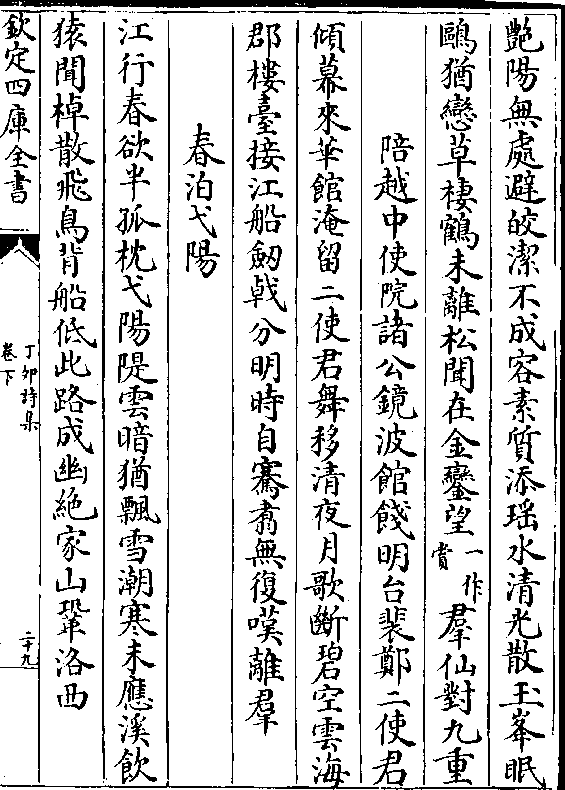 艷陽無處避皎潔不成容素質添瑶水清光散玉峯眠
鷗猶戀草棲鶴未離松聞在金鑾望一作賞羣仙對九重
陪越中使院諸公鏡波館餞明台裴鄭二使君
傾幕來華館淹留二使君舞移清夜月歌斷碧空雲海
郡樓臺接江船劒戟分明時自騫翥無復嘆離羣
春泊弋陽
江行春欲半孤枕弋陽隄雲暗猶飄雪潮寒未應溪飲
猿聞棹散飛鳥背船低此路成幽絶家山鞏洛西
欽定四庫全書
丁卯詩集
卷下
二十九